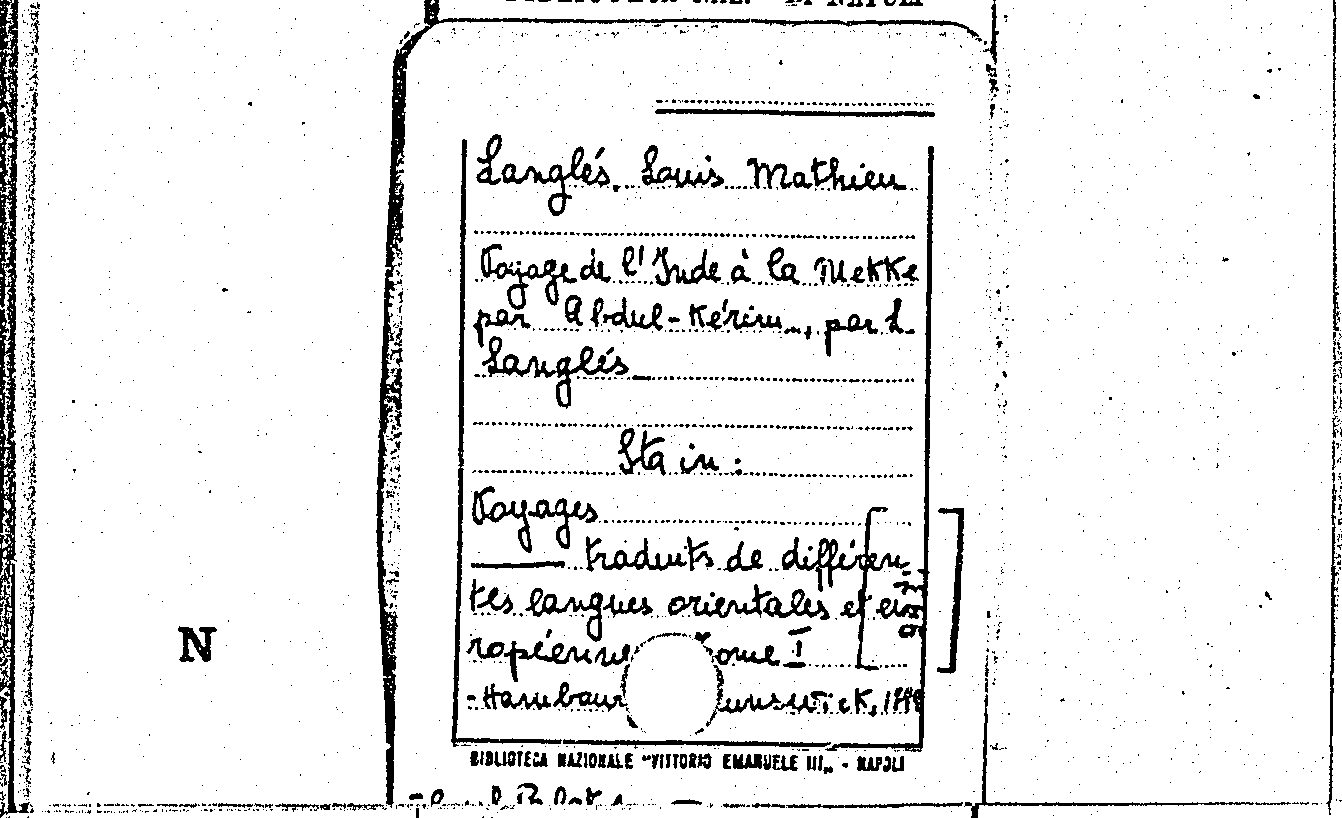 DI NAPOLI
Langlés, Louis Mathieu
Voyage de l'Inde à la Mekke
par Abdul-Kérim..., par L.
Langlés
Sta in:
Voyages
traduits de différen-
tes langues orientales et eu-
ropéenne ome I
-Hambour unswick,
N
BIBLIOTECA NAZIONALE "VITTORIO EMANUELE III„ - NAPOLI